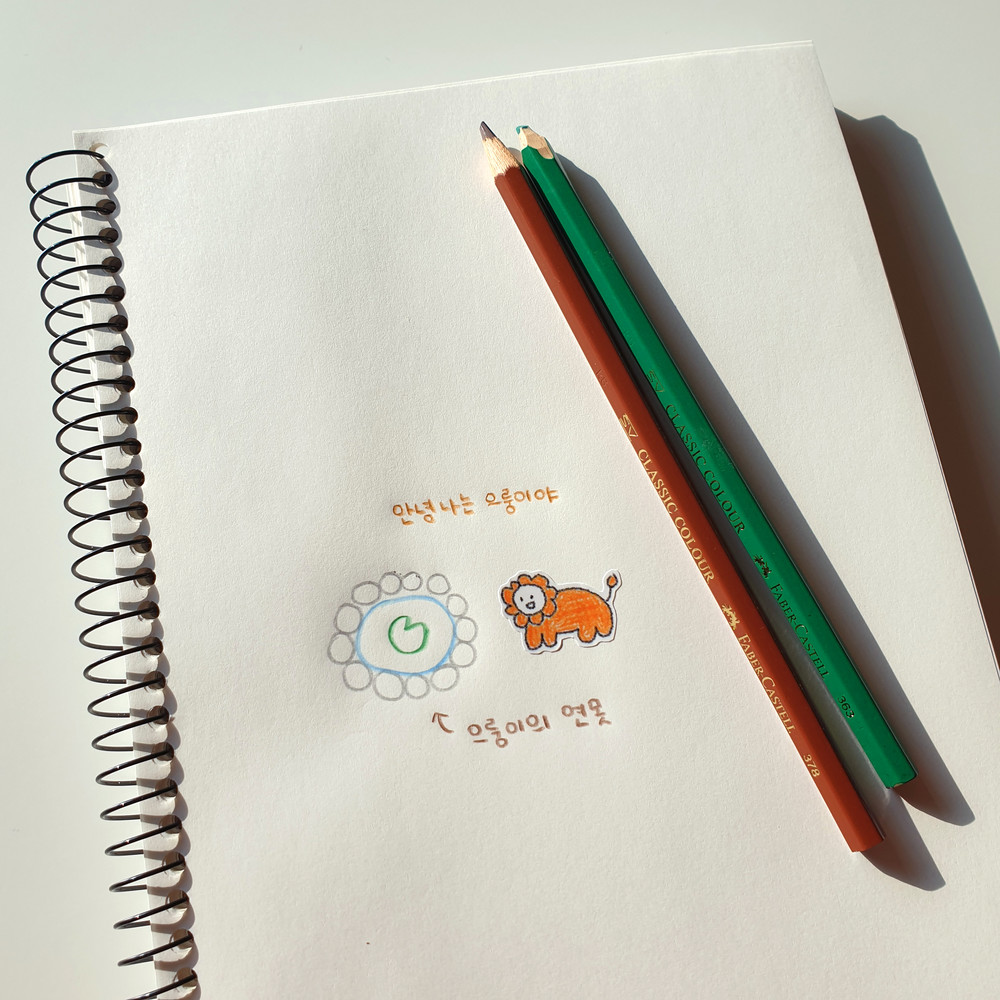 안녕 나는 으룽이야
으룽이의 연못
CLASSIC COLOUR FABER-CASTELL 378
CLASSIC COLOUR FABER-CASTELL 363